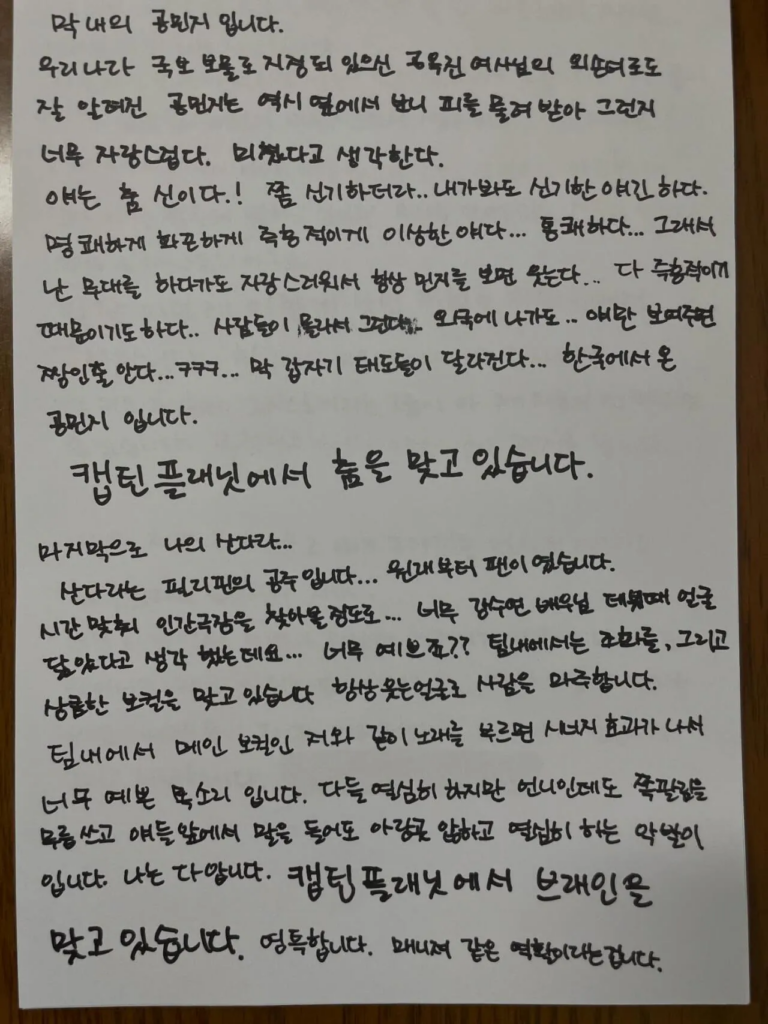 막내의 공민지 입니다.
우리나라 국보 보물로 지정되 있으신 공옥진 여사님의 외손녀로도
잘 알혀진 공민지는 역시 옆에서 보니 피를 물려 받아 그런지
너무 자랑스럽다. 미쳤다고 생각한다.
얘는 춤 신이다.! 쫌 신기하더라.. 내가봐도 신기한 얘긴 하다.
명쾌하게 화끈하게 즉흥적이게 이상한 얘다... 통쾌하다... 그래서
난 무대를 하다가도 자랑스러워서 항상 민지를 보면 웃는다... 다 즉흥적이기
때문이기도하다.. 사람들이 몰라서 그런다... 외국에 나가도.. 얘만 보여주면
짱인줄 안다...ㅋㅋㅋ... 막 갑자기 태도들이 달라진다... 한국에서 온
공민지 입니다.
캡틴플래닛에서 춤을 맞고 있습니다.
마지막으로 나의 산다라...
산다라는 필리핀의 공주입니다... 원래부터 팬이였습니다.
시간 맞춰 인간극장을 찾아볼정도로... 너무 강수연 배우님 데뷔때 얼굴
닮았다고 생각 했는데요... 너무 예쁘죠?? 팀내에서는 조화를, 그리고
상큼한 보컬을 맞고 있습니다 항상웃는얼굴로 사람을 마주합니다.
팀내에서 메인 보컬인 저와 같이 노래를 부르면 시너지 효과가 나서
너무 예쁜 목소리 입니다. 다들 열심히 하지만 언니인데도 쪽팔림을
무릅 쓰고 얘들앞에서 말을 들어도 아랑곳 않하고 열심히 하는 악발이
입니다. 나는 다 압니다. 캡틴플래닛에서 브래인을
맞고 있습니다. 영특합니다. 매니져 같은 역활이라는겁니다.